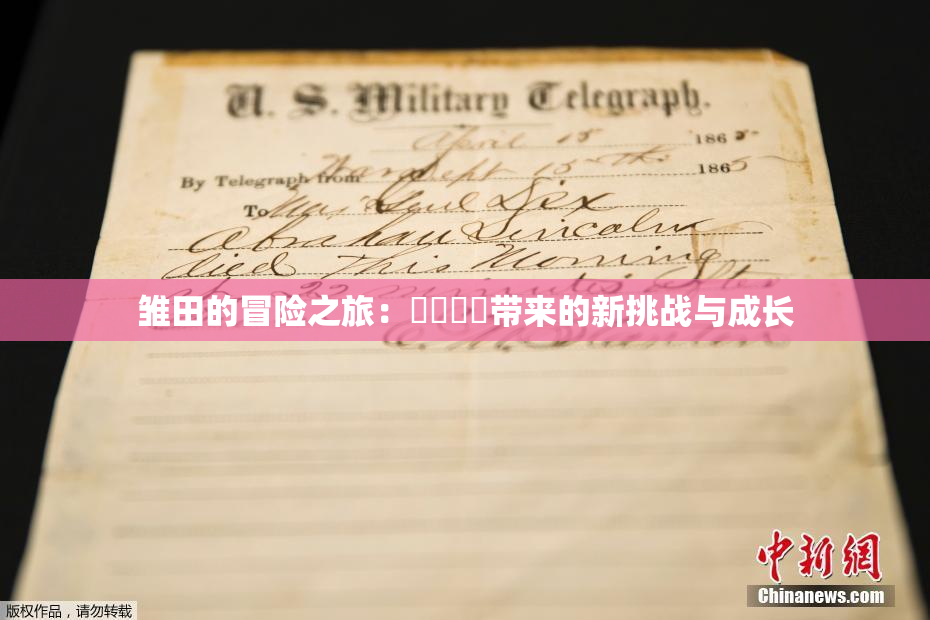 U. S. Military Telegraph.
April 15 1865
By Telegraph from War Dept 15th 1865
To Maj Genl Dix
Abraham Lincoln
died This Morning
22 minutes after
雏田的冒险之旅：带来的新挑战与成长
E. M. Stanton
中新网
Chinanews.com
版权作品，请勿转载